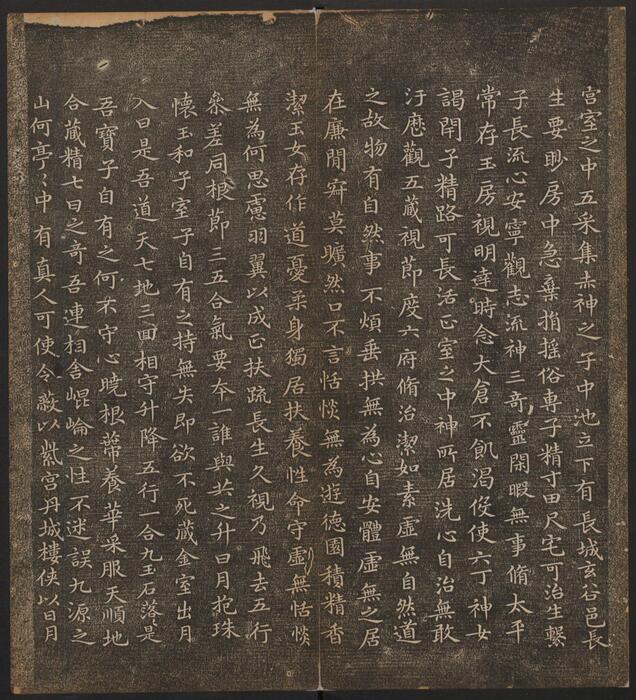 宫室之中五采集赤神之子中池立下有長城玄谷邑長
生要眇房中急棄捐揺俗専子精寸田尺宅可治生繫
子長流心安寧觀志流神三奇靈閑暇無事脩太平
常存玉房視明達時念大倉不飢渴伇使六丁神女
謁閇子精路可長活正室之中神所居洗心自治無敢
汙歷觀五藏視節度六府脩治潔如素虛無自然道
之故物有自然事不煩垂拱無為心自安體虛無之居
在廉間寂莫曠然口不言恬惔無為遊德園積精香
潔玉女存作道憂柔身獨居扶養性命守虛無恬惔
無為何思慮羽翼以成正扶疏長生久視乃飛去五行
參差同根節三五合氣要本一誰與共之升日月抱珠
懷玉和子室子自有之持無失即欲不死藏金室出月
入日是吾道天七地三回相守升降五行一合九玉石落落是
吾寶子自有之何不守心曉根蔕養華采服天順地
合藏精七日之奇吾連相舍崐崘之性不迷誤九源之
山何亭〻中有真人可使令蔽以紫宫丹城樓侠以日月